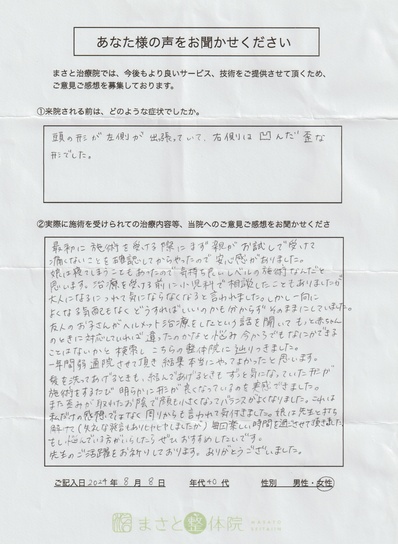 あなた様の声をお聞かせください
まさと治療院では、今後もより良いサービス、技術をご提供させて頂くため、
ご意見ご感想を募集しております。
①来院される前は、どのような症状でしたか。
頭の形が左側が出張っていて、右側は凹んだ歪な
形でした。
②実際に施術を受けられての治療内容等、当院へのご意見ご感想をお聞かせくださ
最初に施術を受ける際にまず親がお試しで受けて
痛くないことを確認してからやったので安心感がありました。
娘は寝てしまうこともあったので気持ち良いレベルの施術なんだと
思います。治療を受ける前に小児科で相談したこともありましたが
大人になるにつれて気にならなくなると言われました。しかし一向に
よくなる気配もなくどうすればいいのかも分からずそのままにしていました。
友人のお子さんがヘルメット治療をしたという話を聞いてもっと赤ちゃん
のときに対応していれば違ったのかなと悩み今からでもなにかできる
ことはないかと検索しこちらの整体院に辿りつきました。
一年間弱通院させて頂き結果本当にやってよかったと思います。
髪を洗ってあげるときも、結んであげるときもずっと気になっていた形が
施術をするたび明らかに形が良くなっているのを実感できました。
また歪みが取れたお陰で顔も小さくなってバランスがよくなりました。これは
私だけの感想ではなく周りからも言われて気付きました。娘は先生と打ち
解けて(失礼な発言もありヒヤヒヤしましたが)毎回楽しい時間を過ごさせて頂きました。
もし悩んでいる方がいらしたらぜひおすすめしたいです。
先生のご活躍をお祈りしております。ありがとうございました。
ご記入日2024年 8月 8日 年代40代 性別 男性・女性
まさと整体院